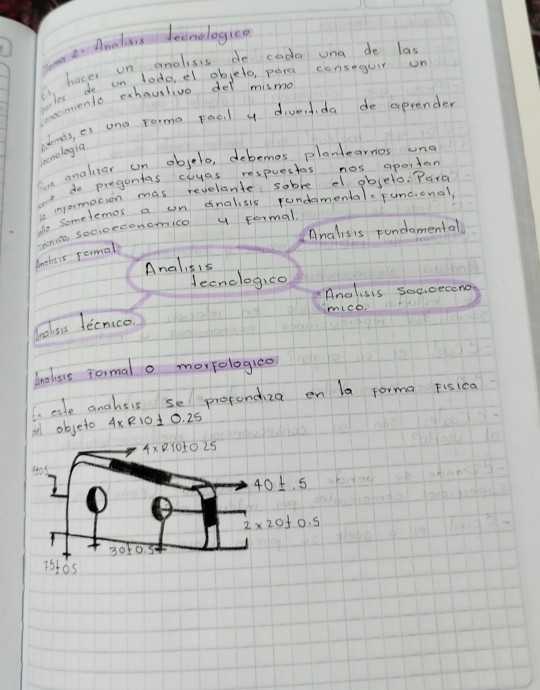 Tema 2: Analisis tecnologico
Es hacer un analisis de cada una de las
partes de un todo, el objeto, para conseguir un
conocimiento exhaustivo del mismo.
Además, es una forma facil y divertida de aprender
tecnologia.
Para analizar un objeto, debemos plantearnos una
serie de preguntas cuyas respuestas nos aportan
la información mas revelante sobre el objeto: Para
ello sometemos a un analisis fundamental = Funcional,
técnico socioeconomico y formal.
Analisis Formal
Analisis Fundamental
Analisis
tecnologico
Analisis técnico.
Analisis socioecono
mico.
Analisis Formal o morfologico
En este analisis se profundiza en la forma Fisica
del objeto 4x R10 ± 0.25
4x R10±0 25
40 ± .5
2 x 20± 0.5
30±0.5
75±
0.5